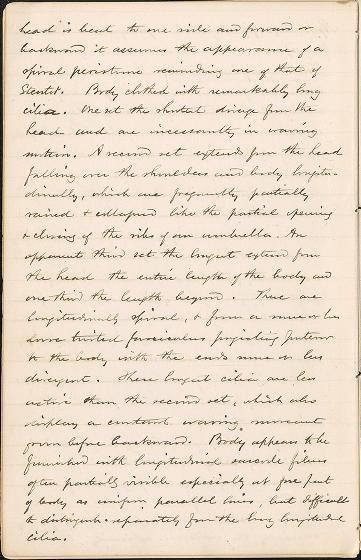 head is bent to one side and forward or
backward it assumes the appearance of a
spiral peristome reminding one of that of
Stentor. Body clothed with remarkably long
cilia. One set the shortest diverge from the
head and are incessantly in waving
motion. A second set extends from the head
falling over the shoulders and body longitu-
dinally, which are frequently partially
raised & collapsed like the partial opening
& closing of the ribs of an umbrella. An
apparent third set the longest extend from
the head the entire length of the body and
one third the length beyond. These are
longitudinally spiral, & form a more or less
loose twisted fasciculus projecting posterior
to the body with the ends more or less
divergent. These longest cilia are less
active than the second set, which also
display a constant waving movement
from before backward. Body appears to be
furnished with longitudinal sarcode fibres
often partially visible especially at fore part
of body as uniform parallel lines, but difficult
to distinguish separately from the long longitudinal
cilia.